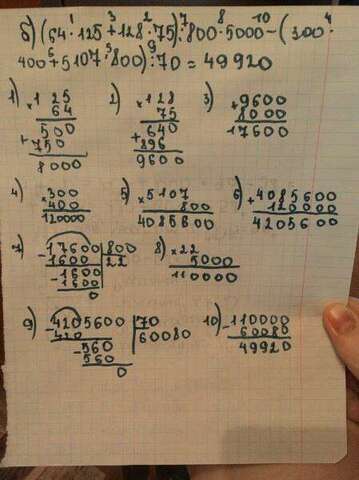 б) (64 · 125 + 128 · 75) : 800 · 5000 - (300 ·
400 + 5107 · 800) : 70 = 49920
1) × 125
64
500
+ 750
8000
2) × 128
75
640
+ 896
9600
3) + 9600
8000
17600
4) × 300
400
120000
5) × 5107
800
4085600
6) + 4085600
120000
4205600
7) - 17600 | 800
1600 | 22
- 1600
1600
0
8) × 22
5000
110000
9) - 4205600 | 70
420 | 60080
- 560
560
0
10) - 110000
60080
49920